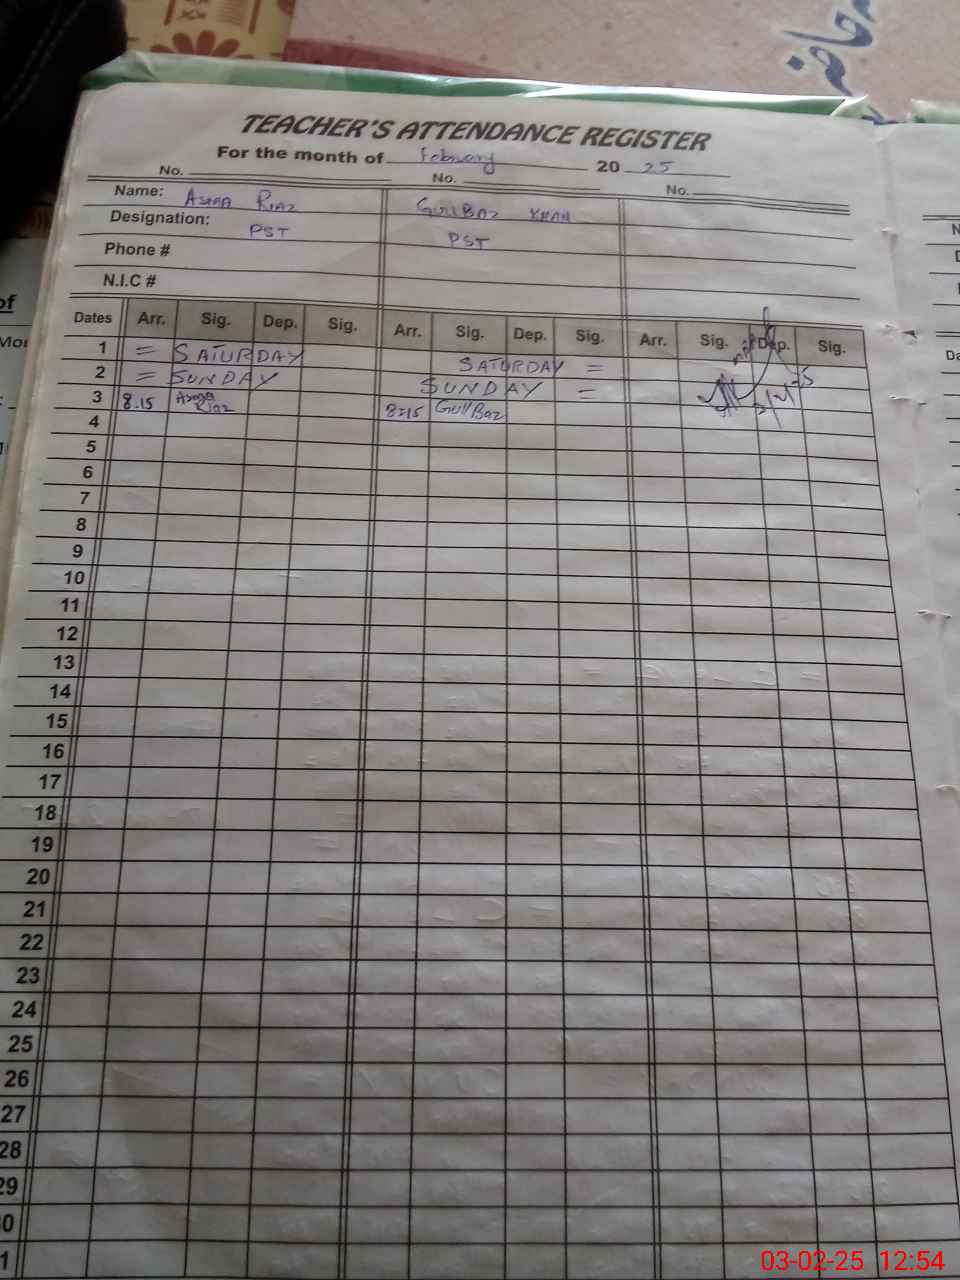 TEACHER'S ATTENDANCE REGISTER
For the month of February 20 25
No. No. No.
Name: ASMA RIAZ GULLBAZ KHAN
Designation: PST PST
Phone #
N.I.C #
Dates Arr. Sig. Dep. Sig. Arr. Sig. Dep. Sig. Arr. Sig. Dep. Sig.
1 = SATURDAY SATURDAY =
2 = SUNDAY SUNDAY =
3 8.15 Asma Riaz 8:15 GullBaz
4
5
6
7
8
9
10
11
12
13
14
15
16
17
18
19
20
21
22
23
24
25
26
27
28
29
30
1
of
03-02-25 12:54